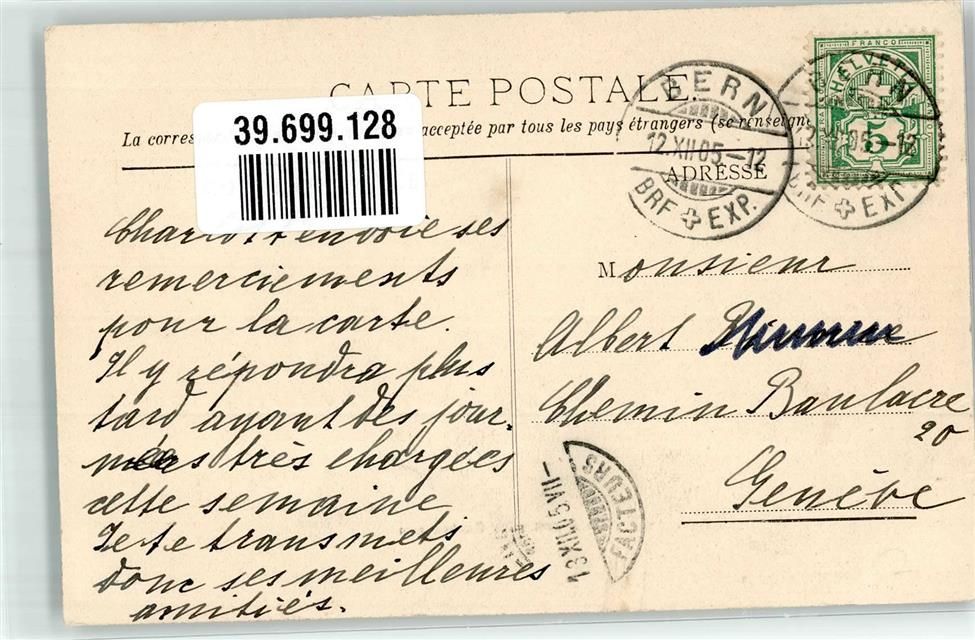 CARTE POSTALE.
39.699.128
La corres acceptée par tous les pays étrangers (se renseigne
ADRESSE
FRANCO
HELVETIA
5
BERN
12.XII.05-12
BRF EXP.
BERN
12.XII.05-12
BRF EXP.
envoie ses
remerciements
pour la carte.
Il y répondra plus
tard ayant des jour-
nées très chargées
cette semaine
Je te transmets
donc ses meilleures
amitiés.
Monsieur
Albert
Chemin Baulacre
20
Genève
FACTEURS
13.XII.05 VII-